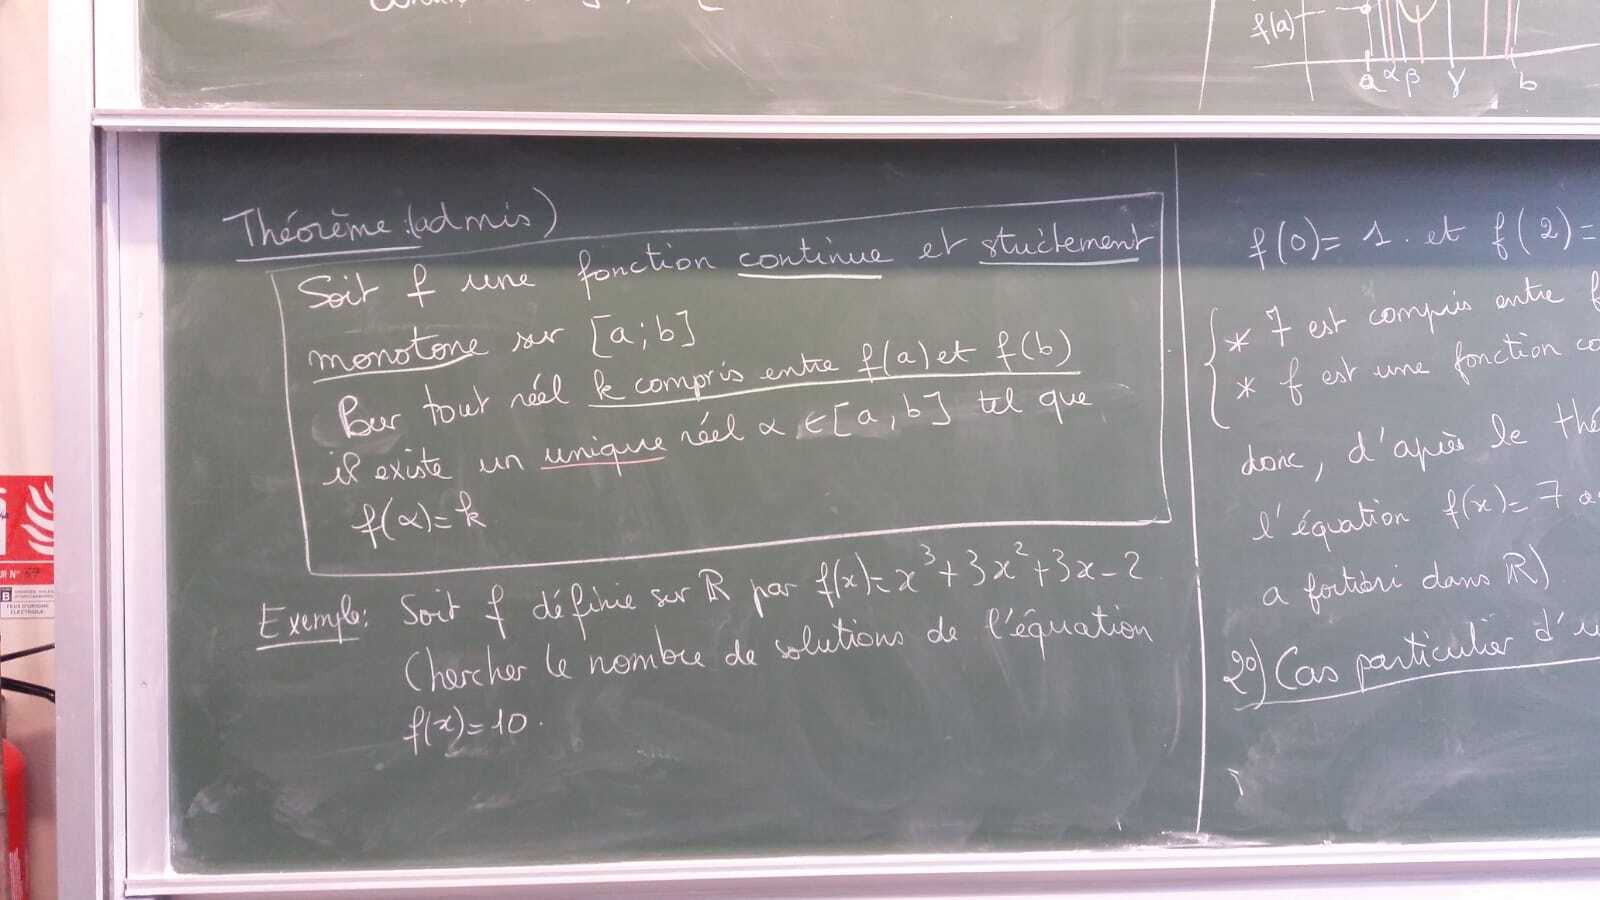 f(a)
a α β γ b
Théorème : (admis)
Soit f une fonction continue et strictement
monotone sur [a ; b]
Pour tout réel k compris entre f(a) et f(b)
il existe un unique réel α ∈ [a, b] tel que
f(α) = k
Exemple : Soit f définie sur ℝ par f(x) = x³ + 3x² + 3x - 2
Chercher le nombre de solutions de l'équation
f(x) = 10.
f(0) = 1. et f(2) =
* 7 est compris entre f
* f est une fonction co
donc, d'après le thé
l'équation f(x) = 7 a
a fortiori dans ℝ)
2°) Cas particulier d'u
B